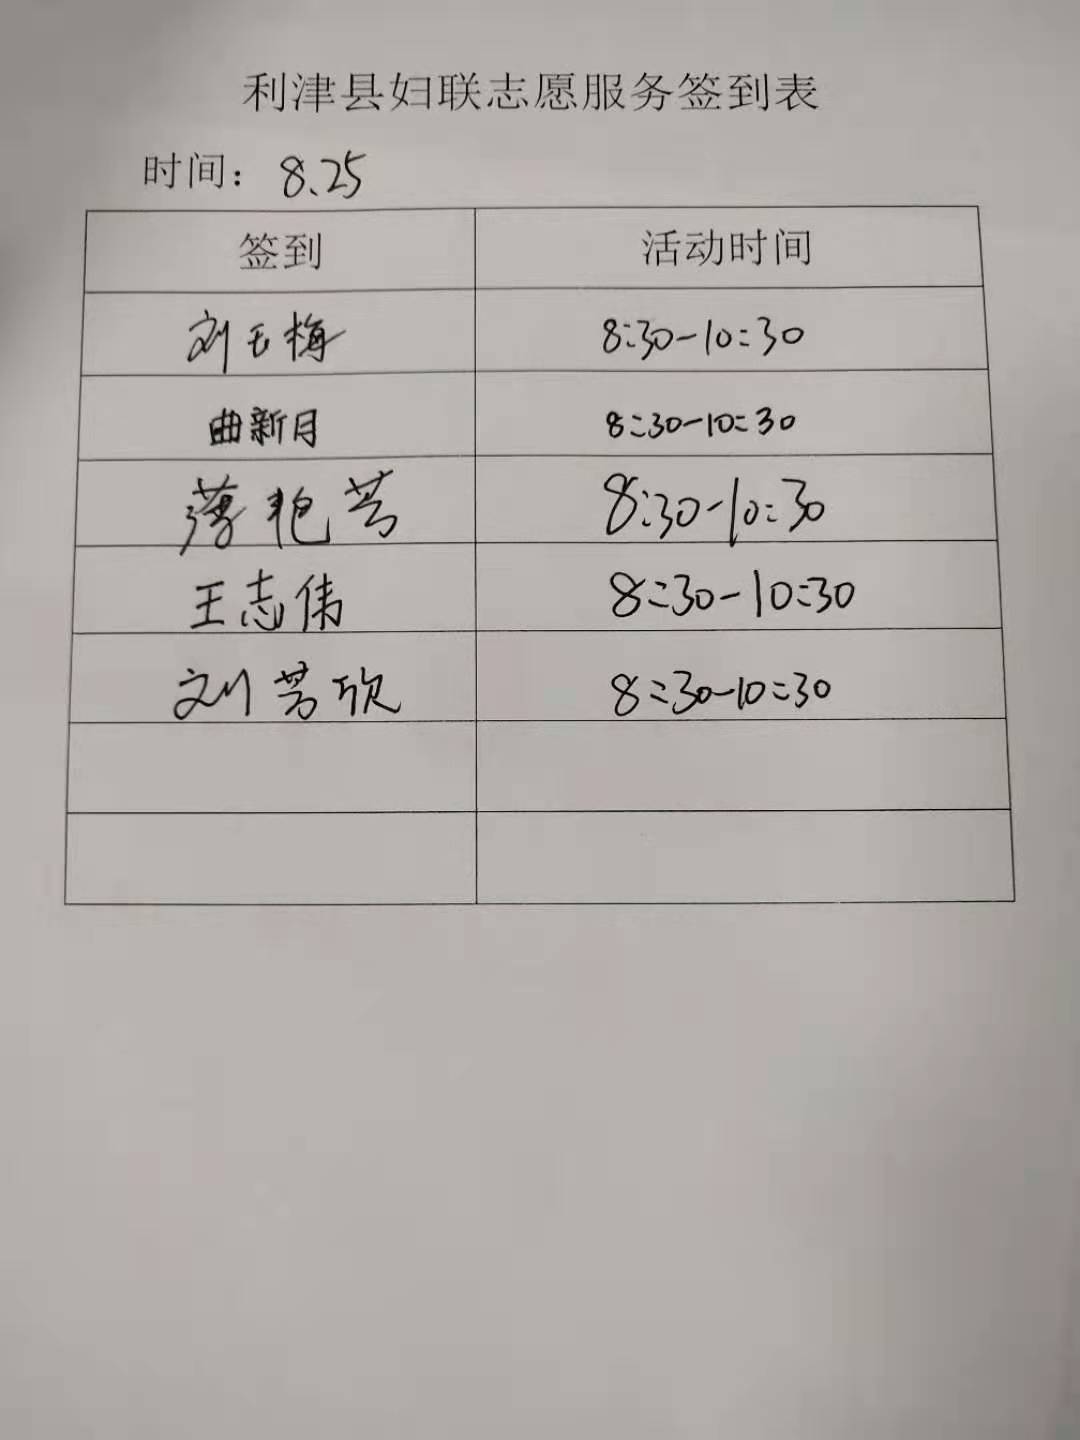 利津县妇联志愿服务签到表
时间：8.25
签到 活动时间
刘玉梅 8:30-10:30
曲新月 8:30-10:30
薄艳芳 8:30-10:30
王志伟 8:30-10:30
刘芳欣 8:30-10:30